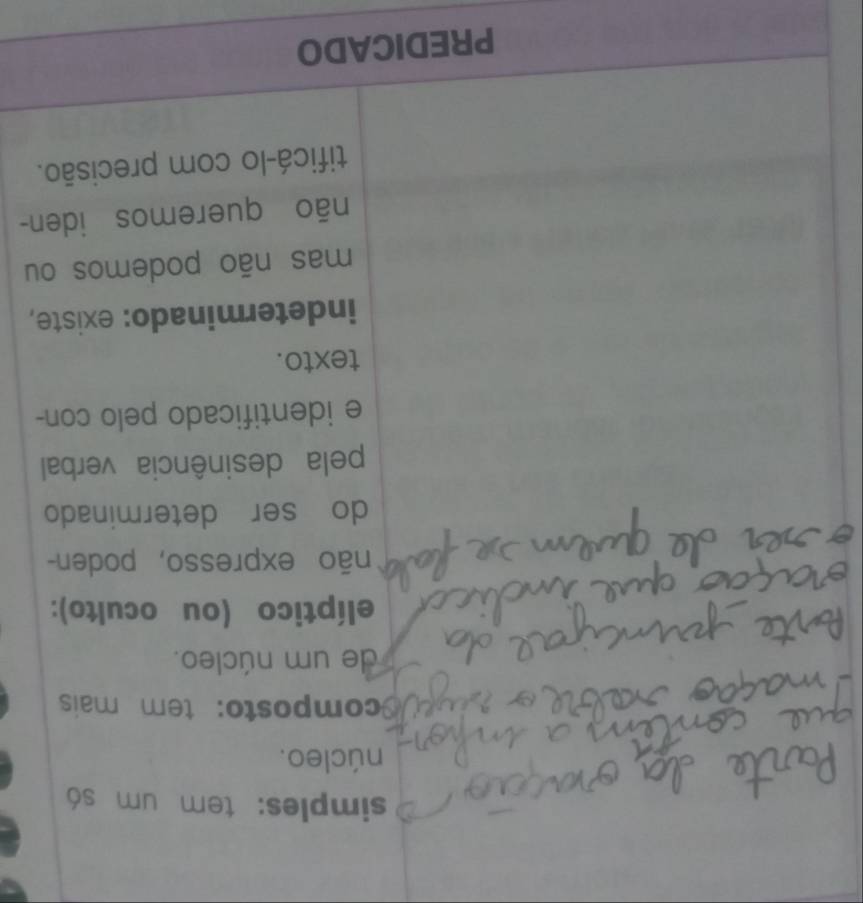 Parte da oração
que contém a infor-
mação sobre o sujeito
Parte principal da
oração que indica
o ser de quem se fala
simples: tem um só
núcleo.
composto: tem mais
de um núcleo.
elíptico (ou oculto):
não expresso, poden-
do ser determinado
pela desinência verbal
e identificado pelo con-
texto.
indeterminado: existe,
mas não podemos ou
não queremos iden-
tificá-lo com precisão.
PREDICADO